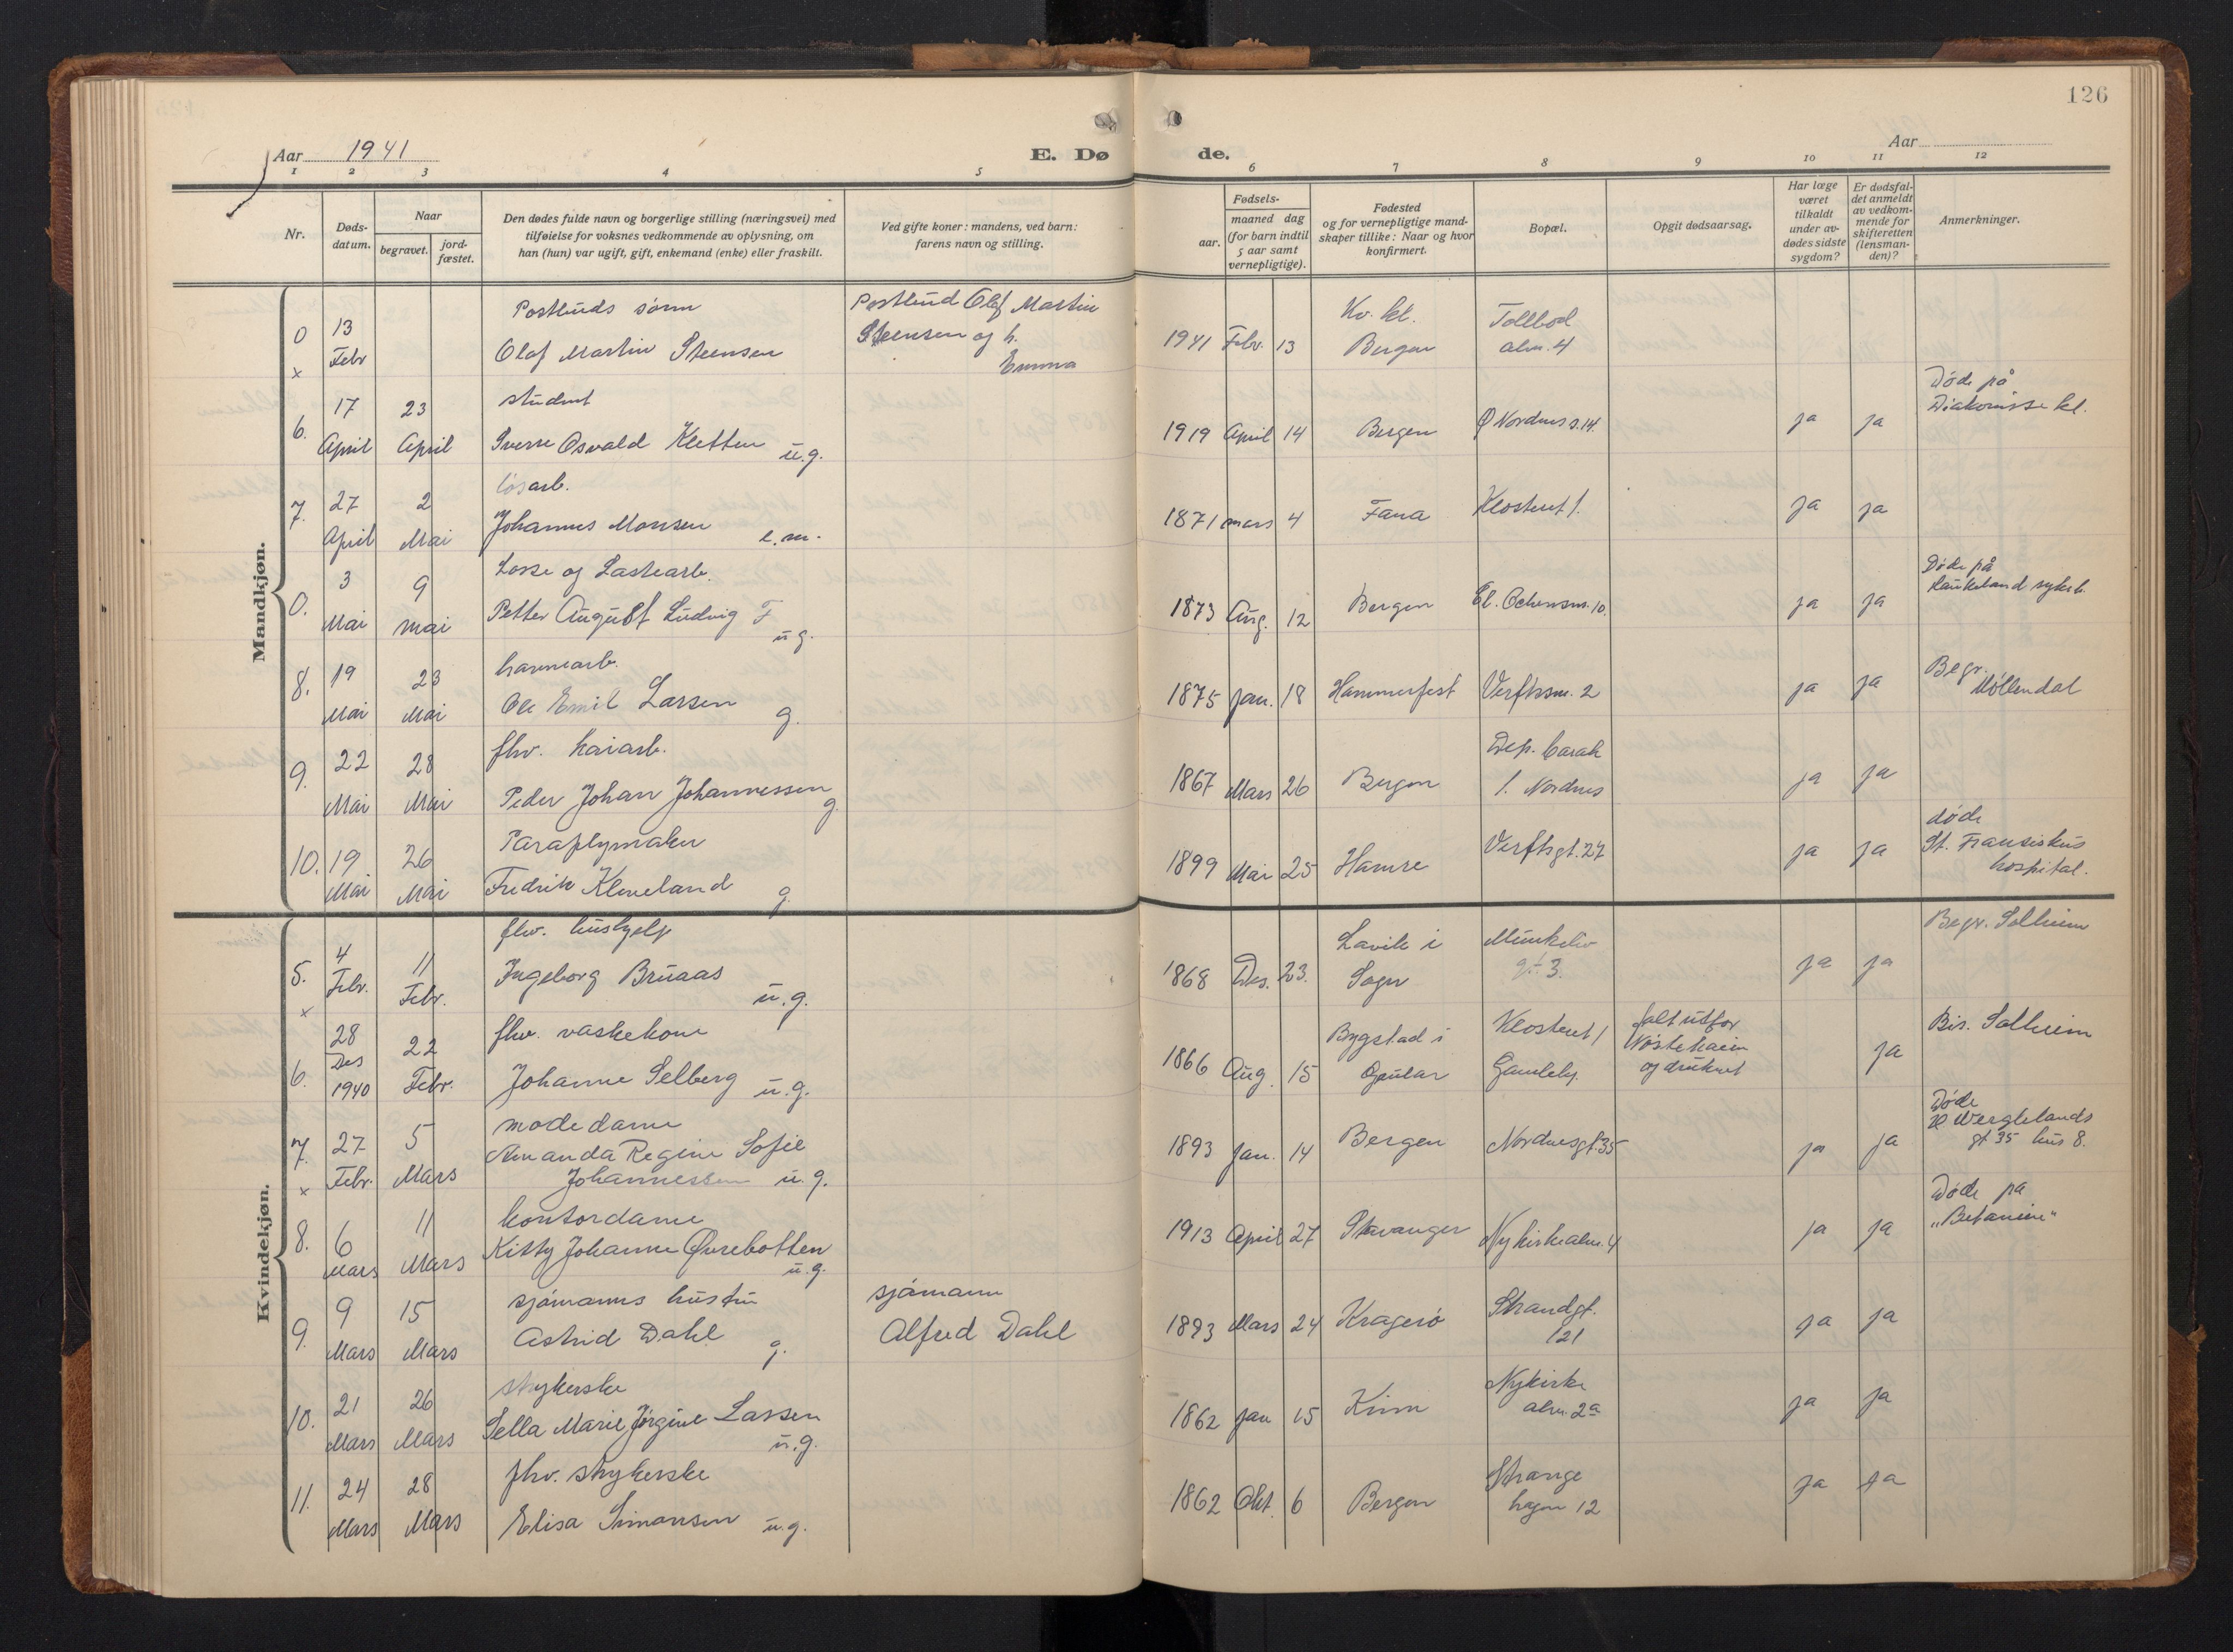 126
Aar 1941
E. Dø
de.
Aar
1 2 3 4 5 6 7 8 9 10 11 12
Nr.
Døds-
datum.
Naar
begravet.
jord-
fæstet.
Den dødes fulde navn og borgerlige stilling (næringsvei) med
tilføielse for voksnes vedkommende av oplysning, om
han (hun) var ugift, gift, enkemand (enke) eller fraskilt.
Ved gifte koner: mandens, ved barn:
farens navn og stilling.
Fødsels-
aar.
maaned dag
(for barn indtil
5 aar samt
vernepligtige).
Fødested
og for vernepligtige mand-
skaper tillike: Naar og hvor
konfirmert.
Bopæl.
Opgit dødsaarsag.
Har læge
været
tilkaldt
under av-
dødes sidste
sygdom?
Er dødsfal-
det anmeldt
av vedkom-
mende for
skifteretten
(lensman-
den)?
Anmerkninger.
Mandkjøn.
0 x
13
Febr
Postbuds sønn
Olaf Martin Steensen
Postbud Olaf Martin
Steensen og h.
Emma
1941 Febr. 13
Kv. kl.
Bergen
Tollbod
alm. 4
6.
17 April
23 April
student
Sverre Osvald Kletten u.g.
1919 April 14
Bergen
Ø Nordnes s. 14.
ja ja
Døde på
Diakonisse kl.
7.
27 April
2 Mai
løsarb.
Johannes Monsen e.m.
1871 mars 4
Fana
Klosteret 1.
ja ja
0.
3 Mai
9 mai
Losse og Lastearb.
Petter August Ludvig F u g.
1873 Aug. 12
Bergen
10.
ja ja
Døde på
Haukeland sykeh.
8.
19 Mai
23 Mai
havnearb.
Ole Emil Larsen g.
1875 jan. 18
Hammerfest
Verftssm. 2
ja ja
Begr.
Møllendal
9.
22 Mai
28 Mai
fhv. kaiarb.
Peder Johan Johannessen g.
1867 Mars 26
Bergen
Dep. barak
1. Nordnes
ja ja
10.
19 Mai
26 Mai
Paraplymaker
Fredrik Kleveland g.
1899 Mai 25
Hamre
Verftsgt. 27
ja ja
døde
St. Fransiskus
hospital.
Kvindekjøn.
5. x
4 Febr.
11 Febr.
fhv. hushjelp
Ingeborg Bruaas u.g.
1868 Des. 23.
Lavik i
Sogn
Munkeliv
gt. 3.
ja ja
Begr. Solheim
6.
28
Des
1940
22 Febr.
fhv. vaskekone
Johanne Selberg u.g.
1866 Aug. 15
Bygstad i
Gaular
Klosteret 1
Gamleh.
falt utfor
Nøstekaien
og druknet
ja
Bis. Solheim
7. x
27 Febr.
5 Mars
motedame
Amanda Regine Sofie
Johannessen u.g.
1893 jan. 14
Bergen
Nordnesgt. 35
ja ja
Døde
H Werglelands
gt 35 hus 8.
8.
6 Mars
11 Mars
kontordame
Kitty Johanne Øvrebotten u.g.
1913 April 27
Stavanger
Nykirkealm. 4
ja ja
Døde pa
„Betanien"
9.
9 Mars
15 Mars
sjømanns hustru
Astrid Dahl g.
sjømann
Alfred Dahl
1893 Mars 24
Kragerø
Strandgt.
121
ja ja
10.
21 Mars
26 Mars
strykerske
Sella Marie Jørgine Lassen u.g.
1862 jan 15
Kinn
Nykirke
alm. 2a
ja ja
11.
24 Mars
28 Mars
fhv. strykerske
Elisa Simonsen u.g.
1862 Okt. 6
Bergen
Strange
hagen 12
ja ja